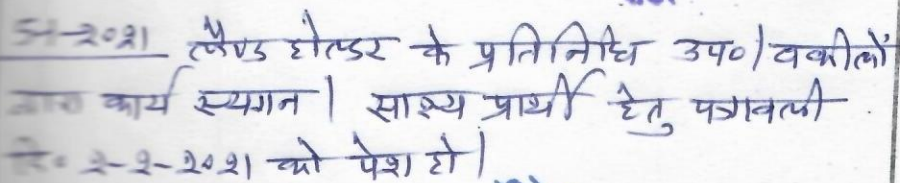 5-1-2021 लैण्ड होल्डर के प्रतिनिधि उप०। वकीलों
द्वारा कार्य स्थगन। साक्ष्य प्रार्थी हेतु पत्रावली
दि० 2-2-2021 को पेश हो।